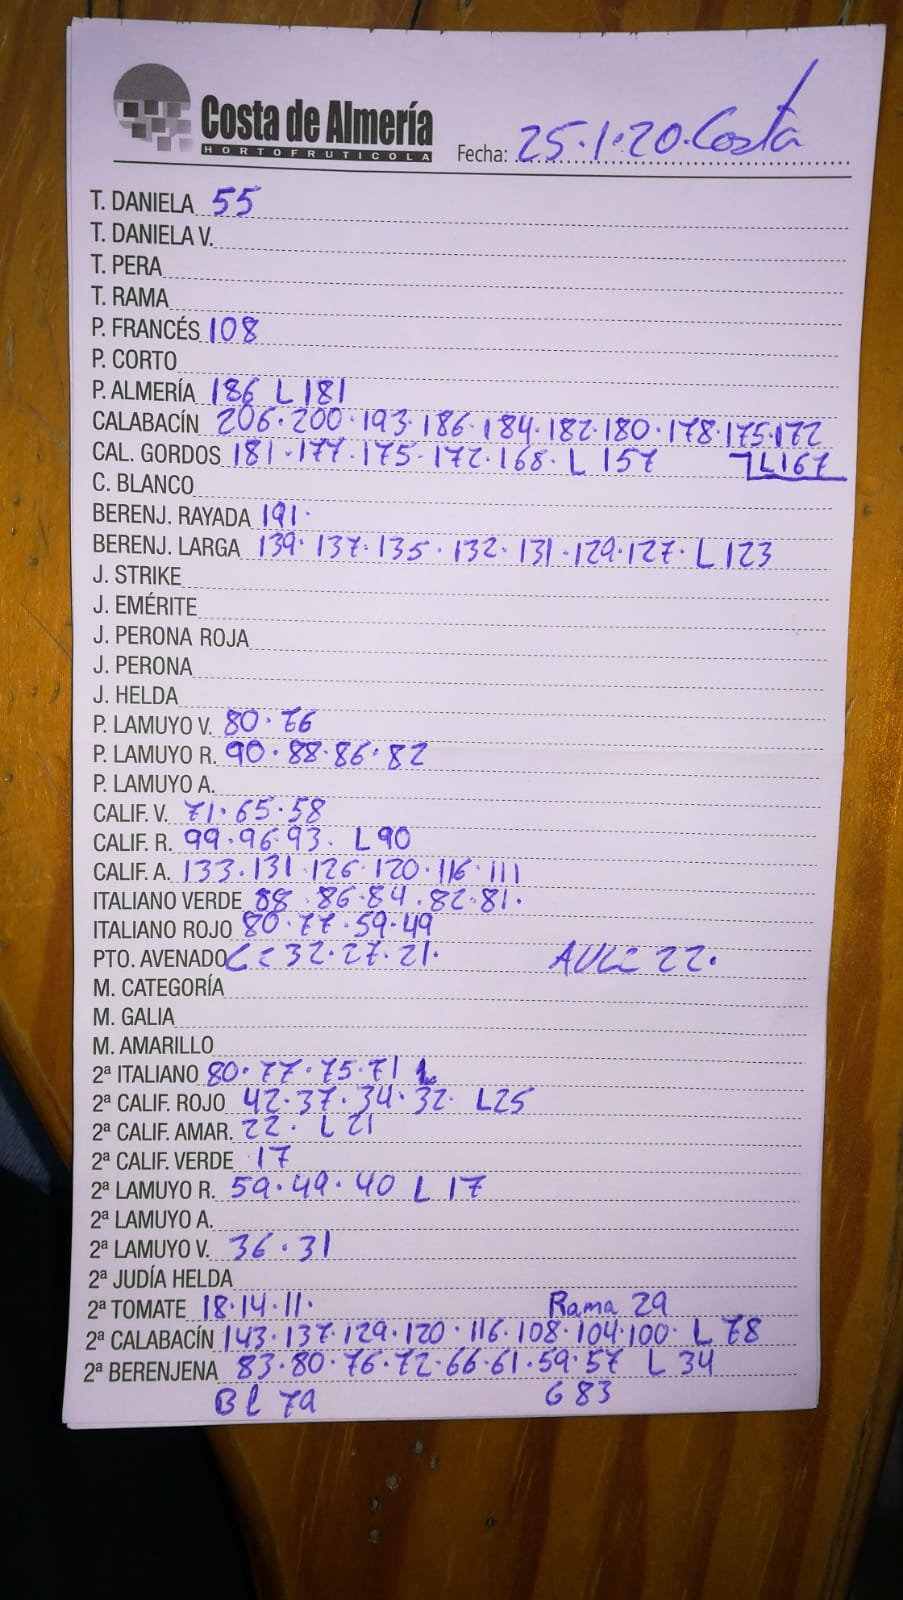 Costa de Almería
HORTOFRUTICOLA
Fecha: 25.1.20. Costa
T. DANIELA 55
T. DANIELA V.
T. PERA
T. RAMA
P. FRANCÉS 108
P. CORTO
P. ALMERÍA 186 L 181
CALABACÍN 206·200·193·186·184·182·180·178·175·172
L 167
CAL. GORDOS 181·177·175·172·168· L 157
C. BLANCO
BERENJ. RAYADA 191·
BERENJ. LARGA 139·137·135·132·131·129·127· L 123
J. STRIKE
J. EMÉRITE
J. PERONA ROJA
J. PERONA
J. HELDA
P. LAMUYO V. 80·76
P. LAMUYO R. 90·88·86·82
P. LAMUYO A.
CALIF. V. 71·65·58
CALIF. R. 99·96·93· L 90
CALIF. A. 133·131·126·120·116·111
ITALIANO VERDE 88·86·84·82·81·
ITALIANO ROJO 80·77·59·49
PTO. AVENADO 32·27·21· 22·
M. CATEGORÍA
M. GALIA
M. AMARILLO
2ª ITALIANO 80·77·75·71
2ª CALIF. ROJO 42·37·34·32· L25
2ª CALIF. AMAR. 22· L 21
2ª CALIF. VERDE 17
2ª LAMUYO R. 59·49·40 L 17
2ª LAMUYO A.
2ª LAMUYO V. 36·31
2ª JUDÍA HELDA
2ª TOMATE 18·14·11· Rama 29
2ª CALABACÍN 143·137·129·120·116·108·104·100· L 78
2ª BERENJENA 83·80·76·72·66·61·59·57 L 34
Bl 79 G 83